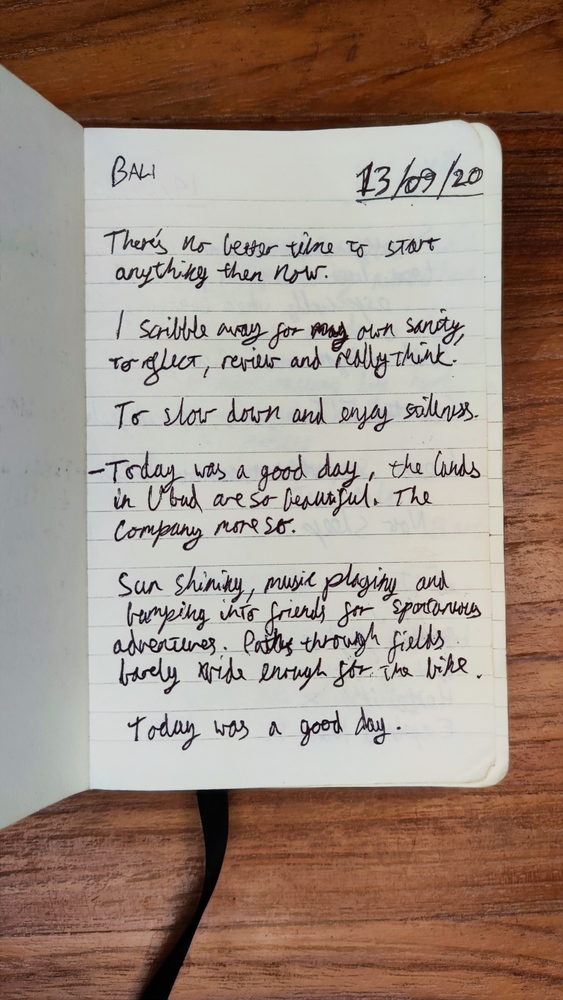 BALI
13/09/20
There's no better time to start
anything then now.
I scribble away for my own sanity,
to reflect, review and really think.
To slow down and enjoy stillness.
- Today was a good day, the lands
in Ubud are so beautiful. The
company more so.
Sun shining, music playing and
bumping into friends for spontanious
adventures. Paths through fields
barely wide enough for the bike.
Today was a good day.